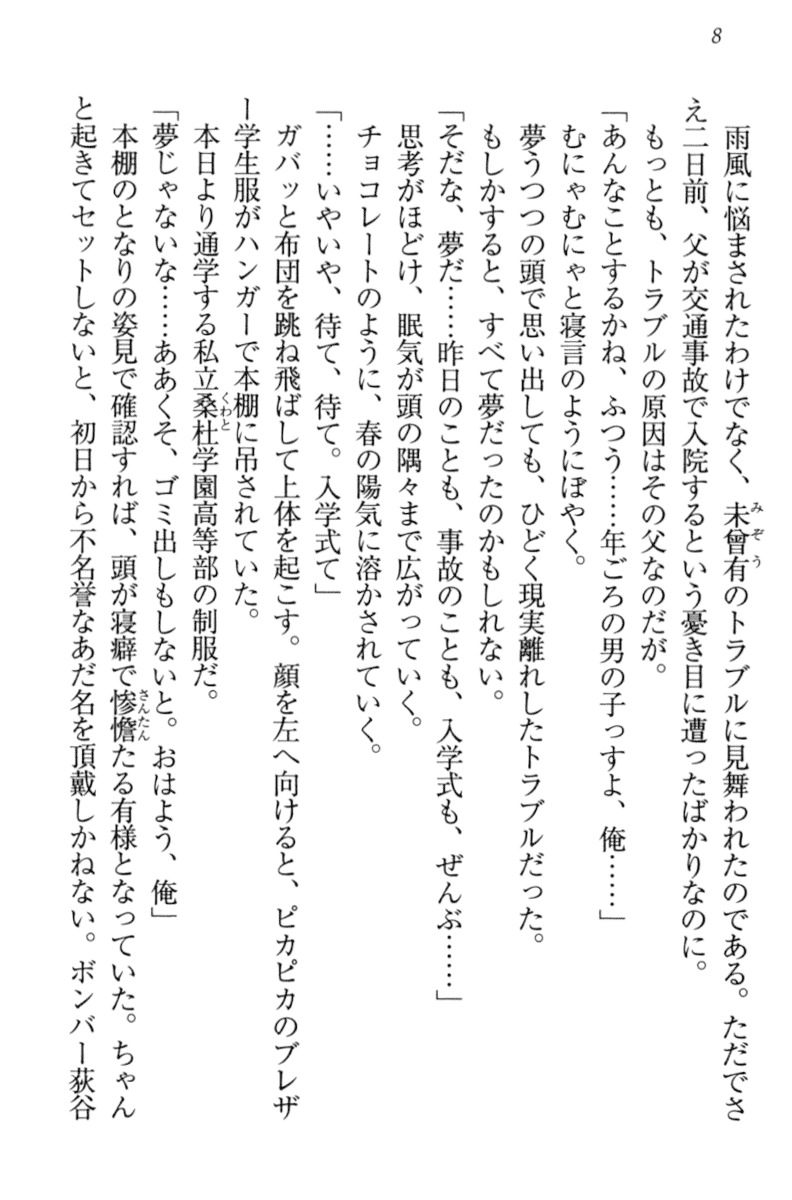 8
雨風に悩まされたわけでなく、未曾有のトラブルに見舞われたのである。ただでさ
え二日前、父が交通事故で入院するという憂き目に遭ったばかりなのに。
もっとも、トラブルの原因はその父なのだが。
「あんなことするかね、ふつう……年ごろの男の子っすよ、俺……」
むにゃむにゃと寝言のようにぼやく。
夢うつつの頭で思い出しても、ひどく現実離れしたトラブルだった。
もしかすると、すべて夢だったのかもしれない。
「そだな、夢だ……昨日のことも、事故のことも、入学式も、ぜんぶ……」
思考がほどけ、眠気が頭の隅々まで広がっていく。
チョコレートのように、春の陽気に溶かされていく。
「……いやいや、待て、待て。入学式て」
ガバッと布団を跳ね飛ばして上体を起こす。顔を左へ向けると、ピカピカのブレザ
ー学生服がハンガーで本棚に吊されていた。
本日より通学する私立桑杜学園高等部の制服だ。
「夢じゃないな……ああくそ、ゴミ出しもしないと。おはよう、俺」
本棚のとなりの姿見で確認すれば、頭が寝癖で惨憺たる有様となっていた。ちゃん
と起きてセットしないと、初日から不名誉なあだ名を頂戴しかねない。ボンバー荻谷